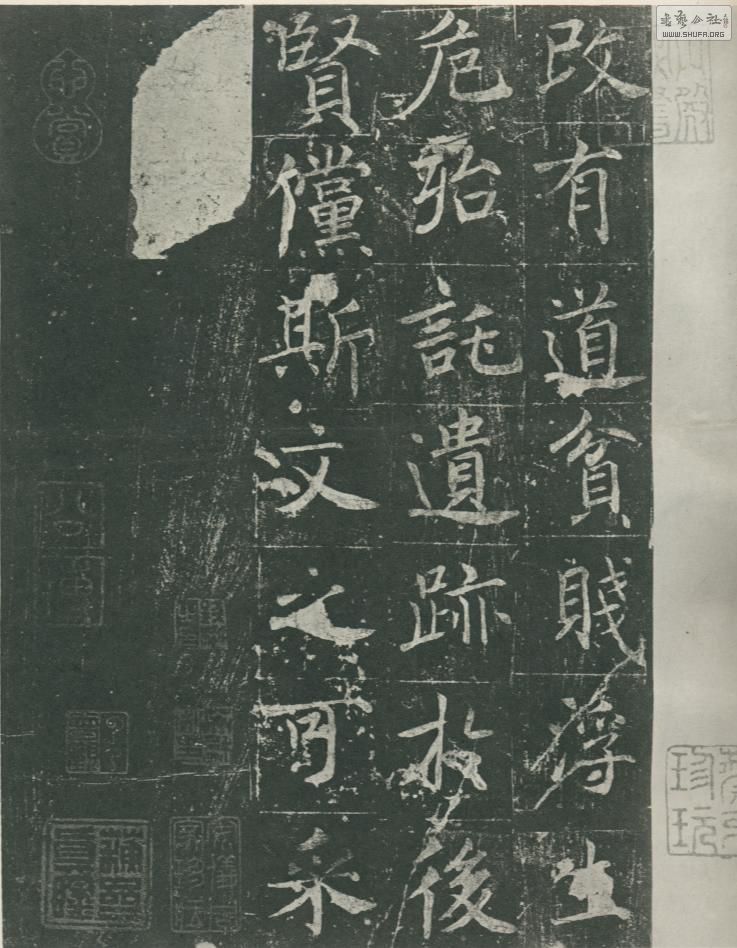 改有道貧賤浮生
危殆託遺跡於後
賢儻斯文之可永
珍玩
书艺公社
WWW.SHUFA.ORG